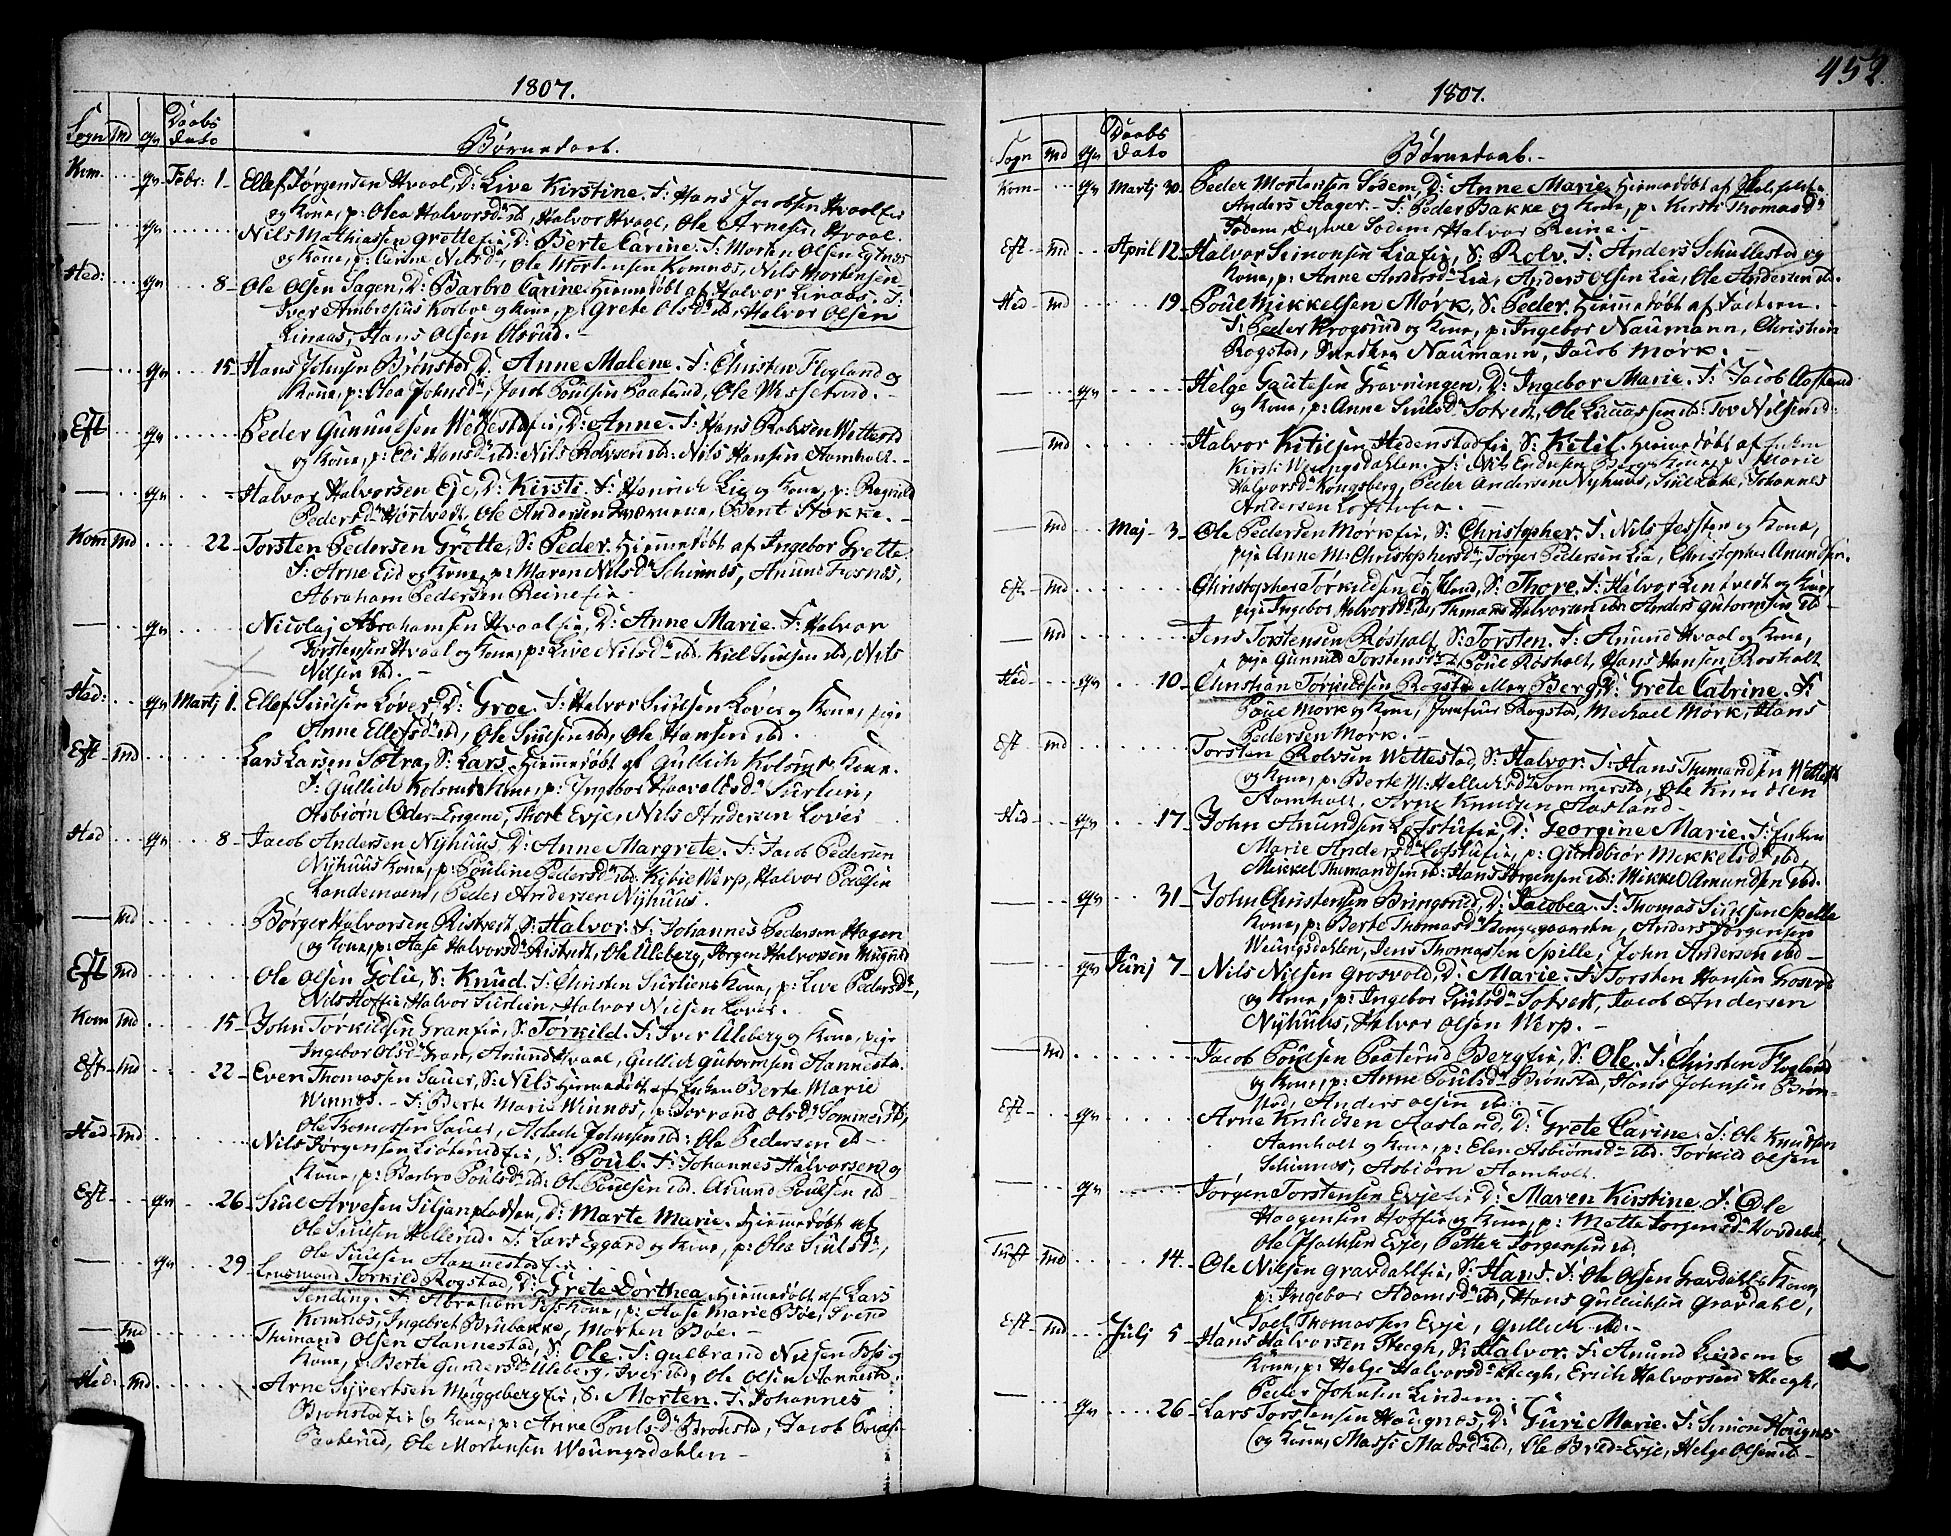 1807.
Sogn Md Qv Daabs dato Børnedaab.
Kom. Qv Febr: 1 Ellef Jørgensen Hvaal, D: Live Kirstine. F: Hans Jacobsen Hvaalfie
og Kone, p: Olea Halvorsd ibd, Halvor Hvaal, Ole Arnesen Hvaal.
— Qv Nils Mathiassen Grettefie, D: Berte Carine. F: Morten Olsen
og Kone, p: Nilsd, Ole Mortensen Komnæs, Nils Mortensen
Hed: Qv 8 Ole Olsen Hagen, D: Barbro Carine. Hiemmedøbt af Halvor Linaas. F:
Iver Ambrosius og Kone, p: Grete Olsd ibd, Halvor Olsen
Linaas, Hans Olsen
— Qv 15 Hans Johnsen Brønstad, D: Anne Malene. F: Christen Flogland og
Kone, p: Olea Johnsd, Jacob Poulsen Paaterud, Ole
Eft Qv Peder Gunnulfsen Wettestafie, D: Anne. F: Hans Rolvsen Wettestd
og Kone, p: Eli Hansd ibd: Nils Rolvsen ibd: Nils Hansen Aamholt.
— Qv Halvor Halvorsen Eje, D: Kirsti. F: Henrich Lia og Kone, p: Ragnild
Pedersd Hortvedt, Ole Andersen, Bent Støkke.
Kom Md 22 Torsten Pedersen Grette, S: Peder. Hiemmedøbt af Ingebor Grette
F: Arne Eid og Kone, p: Maren Nilsd Skinnes, Anund Fosnæs,
Abraham Pedersen Reinefie
— Qv Nicolaj Abrahamsen Hvaalfie, D: Anne Marie. F: Halvor
Torstensen Hvaal og Kone, p: Live Nilsd ibd. Kiel Siulsen ibd, Nils
Nilsen ibd.
Hed: Qv Martj 1. Ellef Siulsen Løver, D: Groe. F: Halvor Siulsen Løver og Kone, pige
Anne Ellefsd ibd, Ole Siulsen ibd, Ole Hansen ibd.
Eft Md Lars Larsen Sætra, S: Lars. Hiemmedøbt af Gullich Kolsrud Kone.
F: Gullich Kolsrud Kone, p: Ingebor Haavelsd Surlien,
Asbiørn Oder-Engene, Thore Evje, Nils Andersen Løver
Hed Qv 8 Jacob Andersen Nyhuus, D: Anne Margrete. F: Jacob Pedersen
Nyhuus Kone, p: Pouline Pedersd ibd. Werp, Halvor Poulsen
Landemoen, Peder Andersen Nyhuus.
— Md Børger Halvorsen Ristvedt, S: Halvor. F: Johannes Pedersen Hagen
og Kone, p: Aase Halvorsd Ristvedt, Ole Ulleberg, Jørgen Halvorsen
Eft Md Ole Olsen Jolie, S: Knud. F: Christen Surliens Kone, p: Live Pedersd,
Nils Hoffie, Halvor Surlien, Halvor Nielsen Løver.
Kom Md 15 John Torkildsen Granfie, S: Torkild. F: Iver Uleberg og Kone, pige
Ingebor Olsd Gran, Anund Hvaal, Gullich Gutormsen Hannesta.
Eft Md 22 Even Thomassen Sauer, S: Nils. Hiemmedøbt af Enken Berte Marie
Winnæs. - F: Berte Marie Winnæs, p: Torrand Olsd Sommerstd,
Ole Thomassen Sauer, Aslach Johnsen ibd: Ole Pedersen ibd
Hed Md Nils Jørgensen Liøterudfie, S: Poul. F: Johannes Halvorsen og
Kone, p: Barbro Poulsd ibd: Ole Poulsen ibd. Anund Poulsen ibd
Eft Qv 26 Siul Arvesen Siljanpladsen, D: Marte Marie. Hiemmedøbt af
Ole Siulsen Hellerud. F: Lars Eggard og Kone, p: Olea Siulsd,
Ole Siulsen Hannestafie
— Qv 29 Torkild Rogstad, D: Grete Dorthea. Hiemmedøbt af Lars
Sending. F: Abraham Kone, p: Aase Marie Bøe, Svend
Komnæs, Ingebret Brubakke, Morten Bøe.
— Md Thimand Olsen Hannestad, S: Ole. F: Gulbrand Nielsen Foss og
Kone, p: Berte Gundersd Uleberg, Iver ibd, Ole Olsen Hannestd.
Hed: Md Arne Syvertsen Muggebergfie, S: Morten. F: Johannes
Brønstadfie og Kone, p: Anne Poulsd Brønstd, Jacob Poulsen
Paaterud, Ole Mortensen Woungsdahlen
1807. 452
Sogn Md Qv Daabs dato Børnedaab.
Kom Qv Martj 30. Peder Mortensen Sodem, D: Anne Marie, Hiemmedøbt af
Anders Hager. F: Peder Bakke og Kone, p: Kirsti Thomasd
Sodem, Sodem, Halvor Reine.
Eft Md April 12. Halvor Simonsen Liafie, S: Rolv. F: Anders Skullestad og
Kone, p: Anne Andersd Lia, Anders Olsen Lia, Ole Andersen ibd.
Hed Md 19 Poul Mikkelsen Mørk, S: Peder. Hiemmedøbt af Faderen.
F: Peder Krogsrud og Kone, p: Ingebor Naumann, Christian
Rogstad, Naumann, Jacob Mørk.
— Qv Helge Gautesen Gravningen, D: Ingebor Marie. F: Jacob Aasterud
og Kone, p: Anne Siulsd Sotvedt, Ole Linaassen ibd: Tov Nilsen ibd:
— Md Halvor Kitilsen Hedenstadfie, S: Kitil. Hiemmedøbt af Enken
Kirsti Woungsdahlen. F: Nils Endresen Berg og Kone, p: Marie
Halvorsd Kongsberg, Peder Andersen Nyhuus, Johannes
Andersen Loftstufie.
— Md Maj 3 Ole Pedersen Mørkfie, S: Christopher. F: Nils Jessen og Kone,
pige Anne M: Christophersd, Torger Pedersen Lia, Christopher Anundsen.
Eft Md Christopher Torkildsen, S: Thore. F: Halvor Lentvedt og Kone,
pige Ingebor Halvorsd ibd, Thimand Halvorsen ibd. Anders Gutormsen ibd
— Md Jens Torstensen Røsholt, S: Torsten. F: Anund Hvaal og Kone,
pige Gunnild Torstensd, Poul Røsholt, Hans Hansen Røsholt
Hed Qv 10 Christian Torkildsen Rogsta eller Berg, D: Grete Catrine. F:
Poul Mørk og Kone, Jomfrue Rogstad, Michael Mørk, Hans
Pedersen Mørk.
Eft Md Torsten Rolvsen Wettestad, S: Halvor. F: Hans Thimandsen Wettesta
og Kone, p: Berte M: Hellechsd Sommerstd, Ole Knudsen
Aamholt, Arne Knudsen Aasland
Hed Qv 17 John Anundsen Loftstufie, D: Georgine Marie. F: Enken
Marie Andersd Loftstufie, p: Gundbiør Mikkelsd ibd,
Mikkel Thimandsen ibd: Hans Jørgensen ibd: Mikkel Amundsen ibd.
— Qv 31 John Christensen Bringerud, D: Jacobea. F: Thomas Siulsen Spelle
Kone, p: Berte Thomasd Kongsgaarden, Anders Jørgensen
Woungsdahlen, Jens Thomassen Spille, John Andersen ibd
— Qv Junj 7 Nils Nielsen Grosvold, D: Marie. F: Torsten Hansen Grosvold
og Kone, p: Ingebor Siulsd Sotvedt, Jacob Andersen
Nyhuus, Halvor Olsen Werp.
— Md Jacob Poulsen Paaterud Bergfie, S: Ole. F: Christen Flogland
og Kone, p: Anne Poulsd Brønsta, Hans Johnsen Brøn-
stad, Anders Olsen ibd.
Eft Qv Arne Knudsen Aasland, D: Grete Carine. F: Ole Knudsen
Aamholt og Kone, p: Elen Asbiørnsd ibd. Torkild Olsen
Skinnæs, Asbiørn Aamholt.
— Qv Jørgen Torstensen Evjefie, D: Maren Kirstine. F: Ole
Haagensen Hoffie og Kone, p: Mette Jørgensd Hovdebøe,
Ole Isachsen Evje, Petter Jørgensen ibd.
Tuft Md 14. Ole Nilsen Gravdahlfie, S: Hans. F: Ole Olsen Gravdahls Kone,
p: Ingebor Adamsd ibd, Hans Gullichsen Gravdahl,
Joel Thomassen Evje, Gullich ibd.
Eft Md Julj 5 Hans Halvorsen Skegh, S: Halvor. F: Anund Lindem og
Kone, p: Helge Halvorsd Skegh, Erich Halvorsen Skegh,
Peder Johnsen Lindem.
— Qv 26 Lars Torstensen Hougnæs, D: Guri Marie. F: Simon Hougnæs
og Kone, Massi Madsd ibd, Ole Bred-Evje, Helge Olsen ibd